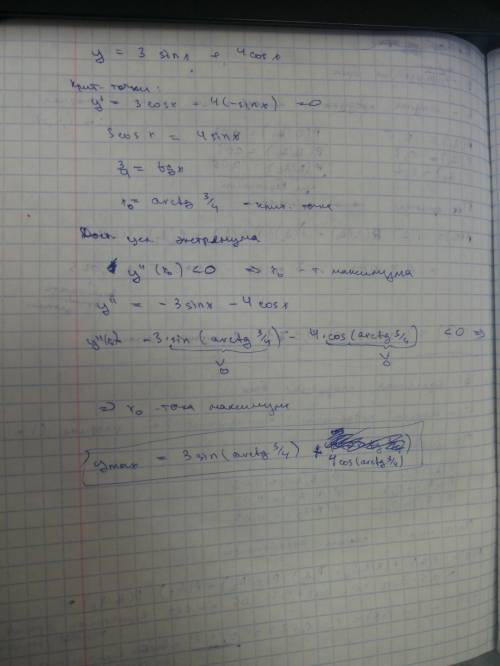 y = 3 sinx + 4 cosx
Крит. точки:
y' = 3 cosx + 4(-sinx) = 0
3 cosx = 4 sinx
3/4 = tg x
x₀ = arctg 3/4 - крит. точка
Дост. усл. экстремума
y''(x₀) < 0 ⇒ x₀ - т. максимума
y'' = -3 sinx - 4 cosx
y''(x₀) = -3·sin(arctg 3/4) - 4·cos(arctg 3/4) < 0 ⇒
∨ 0 ∨ 0
⇒ x₀ - точка максимума
ymax = 3 sin(arctg 3/4) + 4 cos(arctg 3/4)